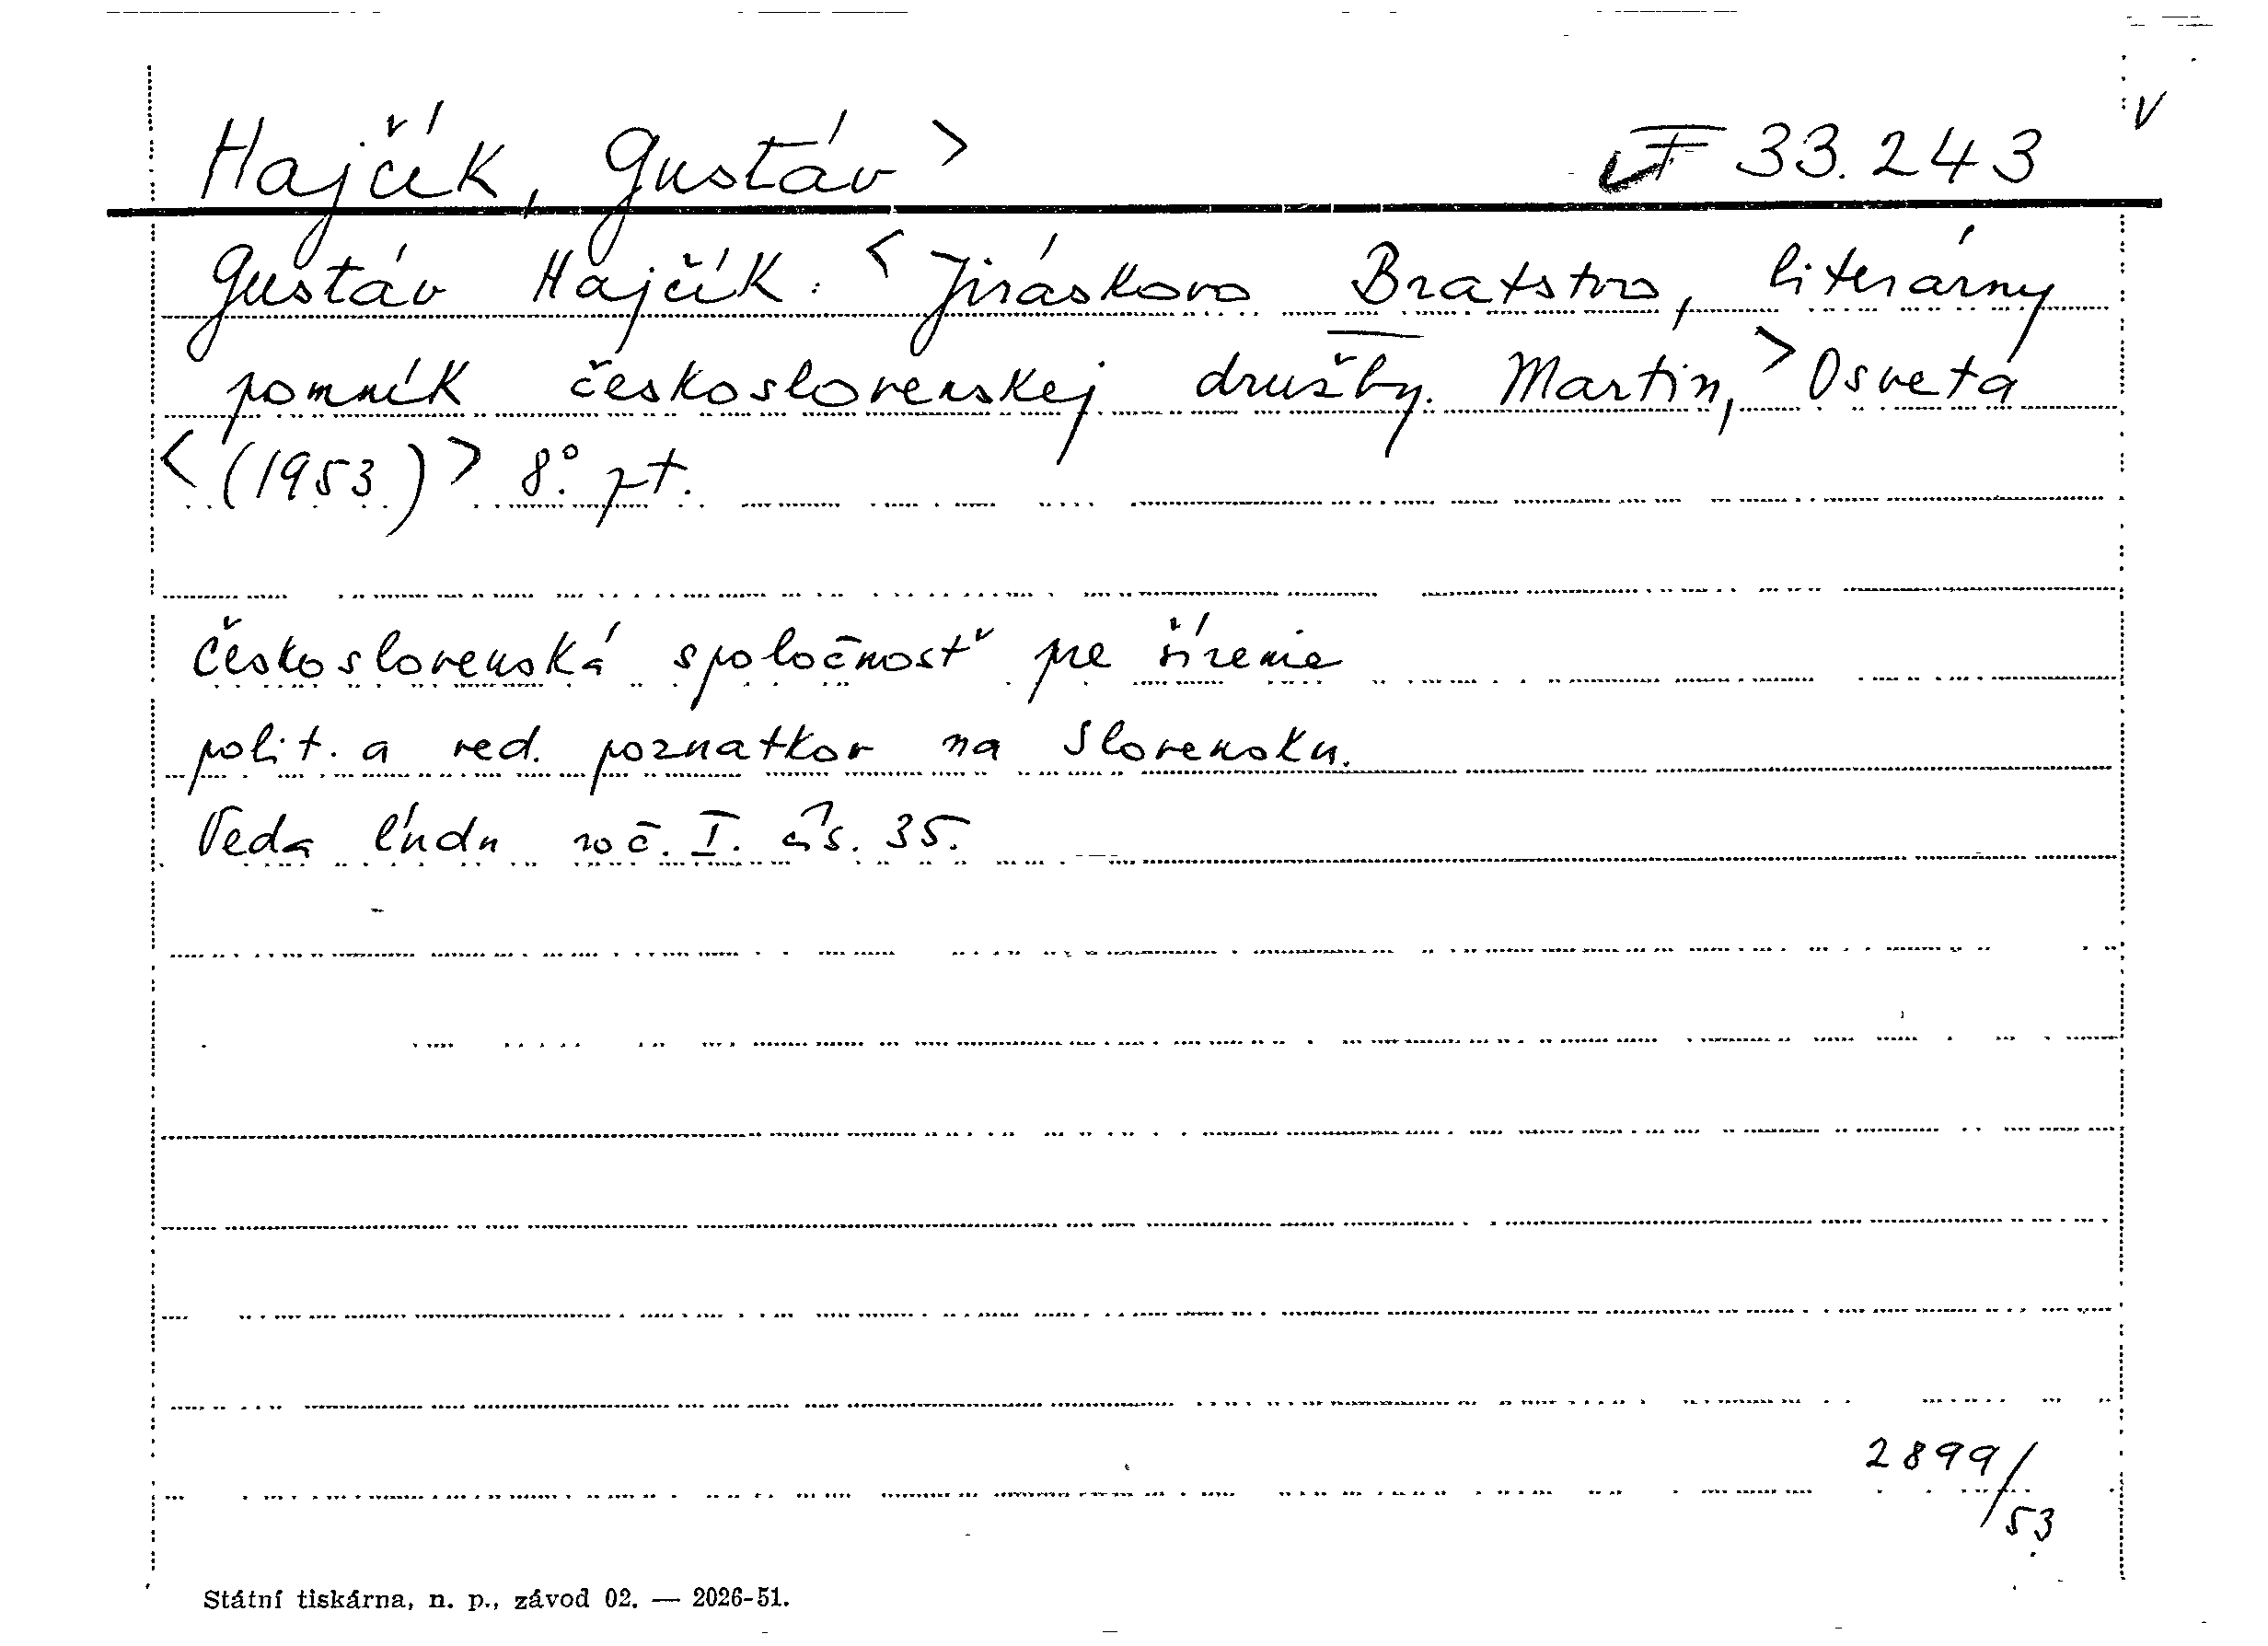 Hajčík, Gustáv > F 33.243 v
Gustáv Hajčík: < Jiráskovo Bratstvo, literárny
pomník československej družby. Martin, > Osveta
< (1953) > 8°. pt.
Československá spoločnosť pre šírenie
polit. a ved. poznatkov na Slovensku.
Veda ľudu roč. I. čís. 35.
2899/53
Státní tiskárna, n. p., závod 02. — 2026-51.